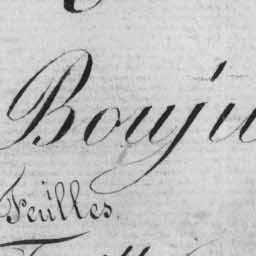 Bouju
Feuilles.